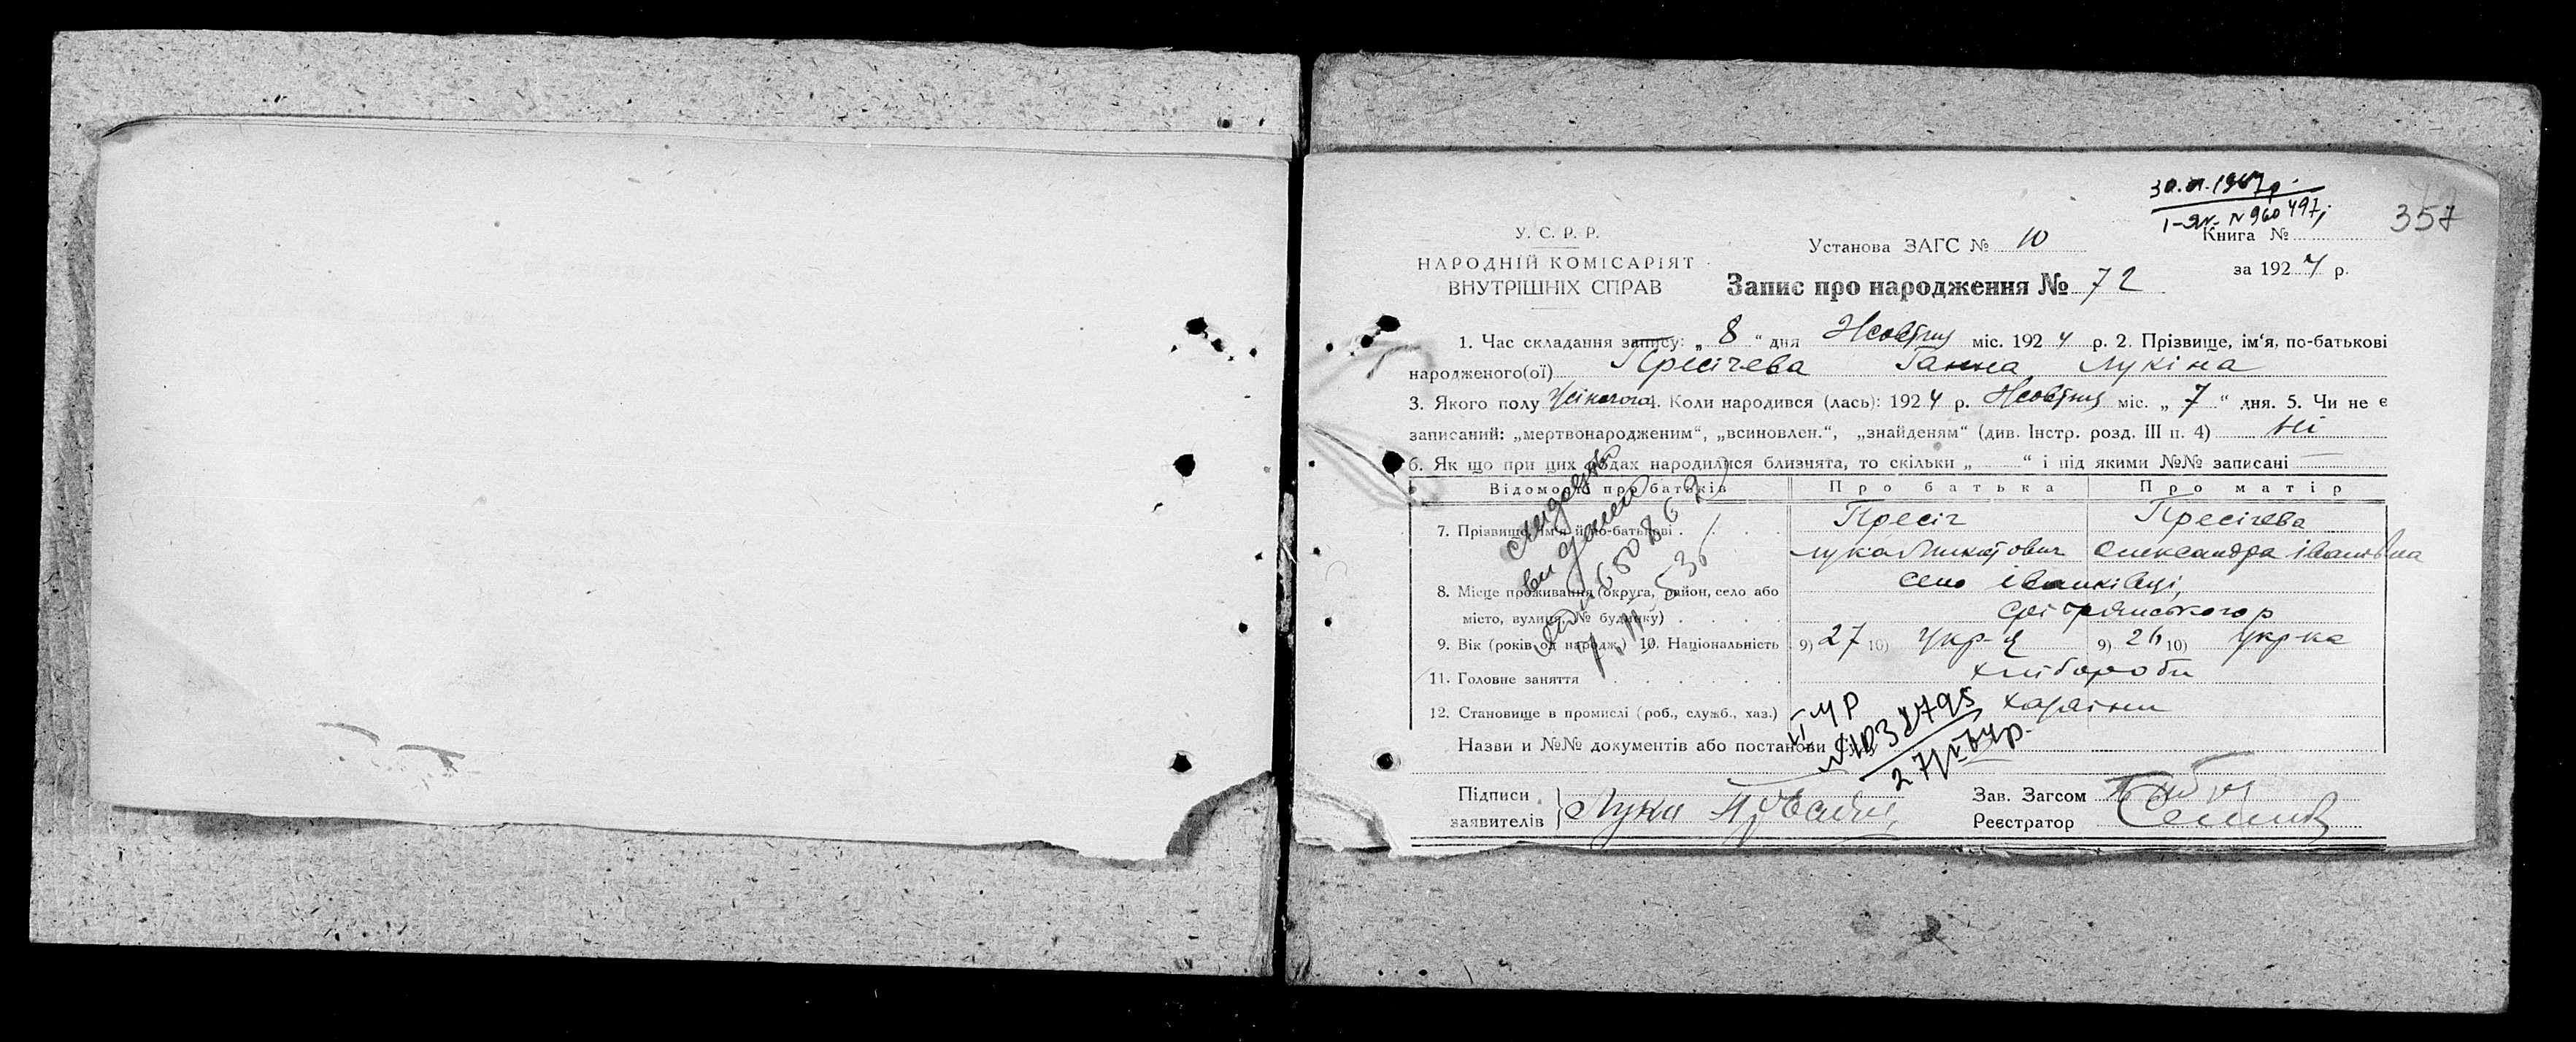 357
У. С. Р. Р.
НАРОДНІЙ КОМІСАРІЯТ
ВНУТРІШНІХ СПРАВ
Установа ЗАГС № 10
Книга №
за 1924 р.
Запис про народження № 72
1. Час складання запису: „ 8 " дня Жовтня міс. 1924 р. 2. Прізвище, ім'я, по-батькові
народженого(ої) Пресічева Ганна Лукіна
3. Якого полу Жіночого 4. Коли народився (лась): 1924 р. Жовтня міс. „ 7 " дня. 5. Чи не є
записаний: „мертвонародженим", „всиновлен.", „знайденям" (див. Інстр. розд. III п. 4) Ні
6. Як що при цих родах народилися близнята, то скільки „ " і під якими №№ записані
Відомості про батьків Про батька Про матір
7. Прізвище, ім'я й по-батькові Пресіч Пресічева
Лука Олександра Іванівна
8. Місце проживання (округа, район, село або село Іванківці,
місто, вулиця, № будинку)
9. Вік (років од народж.) 10. Національність 9) 27 10) 9) 26 10) Укр-ка
11. Головне заняття хлібороби
12. Становище в промислі (роб., служб., хаз.) хазяїни
Назви и №№ документів або постанови
Підписи
заявителів Лука
Зав. Загсом
Реєстратор